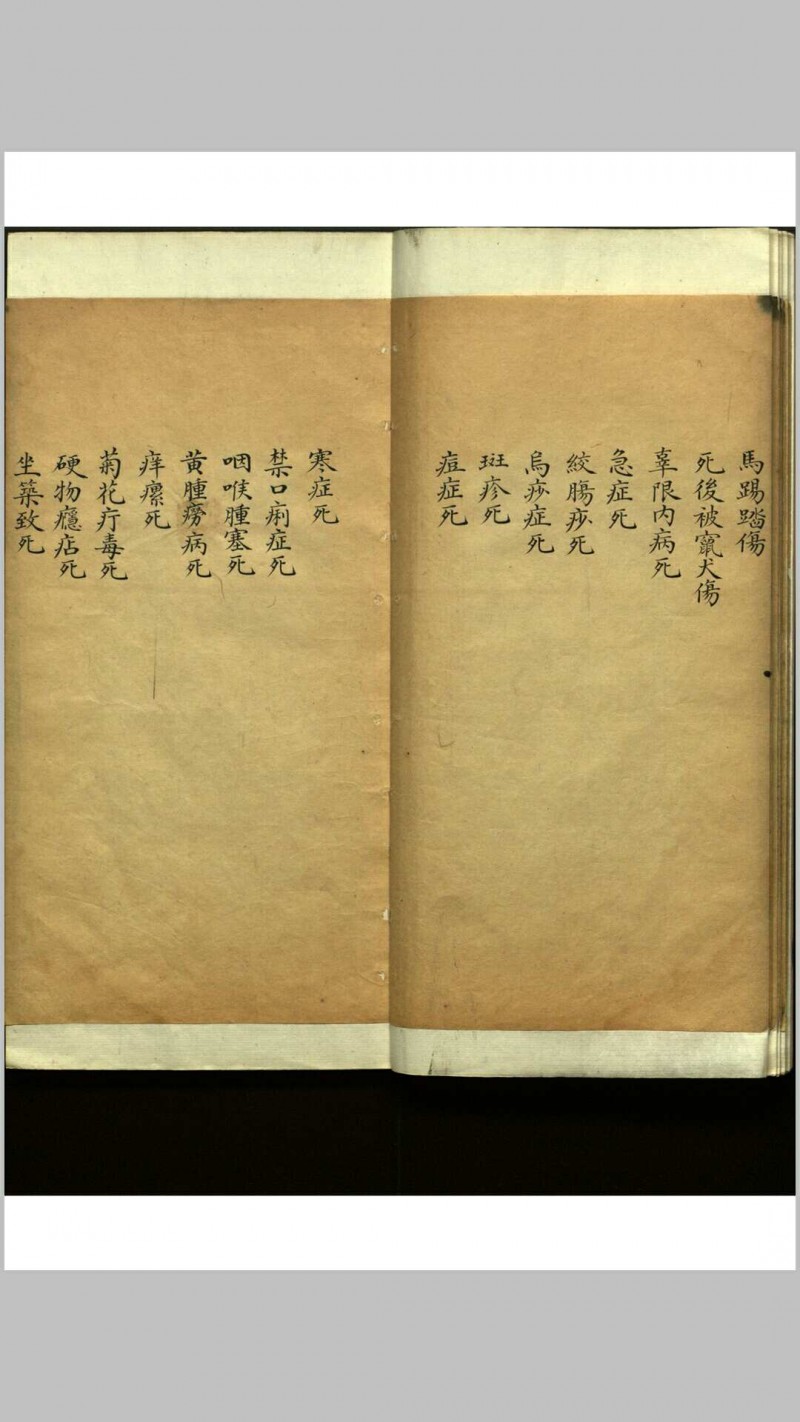 馬踢踏傷
死後被竄犬傷
辜限內病死
急症死
絞腸痧死
烏痧症死
斑疹死
痘症死
寒症死
禁口痢症死
咽喉腫塞死
黃腫癆病死
痒瘰死
菊花疔毒死
硬物癮痁死
坐築致死